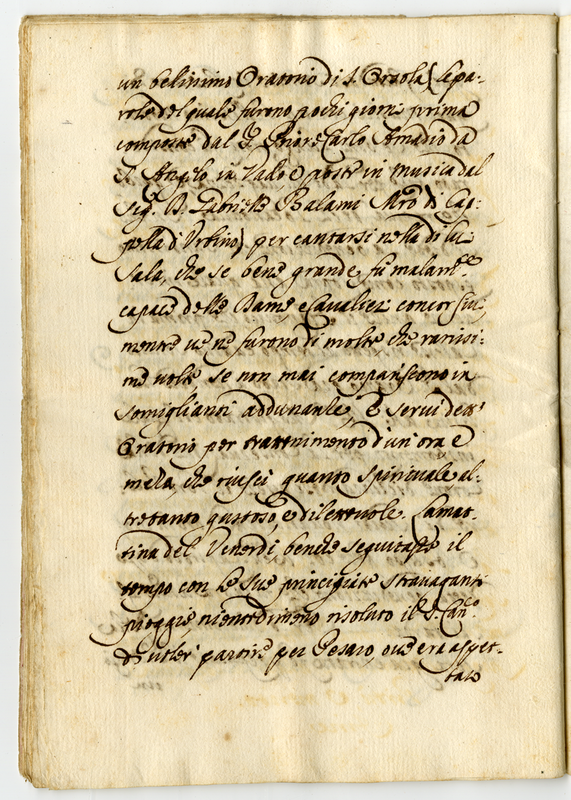 un belissimo Oratorio di S. Orsola (le pa-
role del quale furono pochi giorni prima
composte dal S. Priore Carlo Amadio da
S. Angelo in Vado e poste in musica dal
Sig. D. Gabriele Balami Mro di Cap-
pella di Urbino) per cantarsi nella di lui
Sala, che se bene grande fù malam.te
capace delle Dame, e Cavalieri concorsivi,
mentre ve ne furono di molte che rarissi-
me volte, se non mai compariscono in
somiglianti addunanze, e servì detto
Oratorio per trattenimento d'un'ora e
meza, che riuscì quanto spirituale al-
tretanto gustoso, e dilettevole. La mat-
tina del Venerdi benche seguitasse il
tempo con le sue principiate stravaganti
pioggie, nientedimeno risoluto il S. Can.co
di partire per Pesaro, ove era aspet-
tato